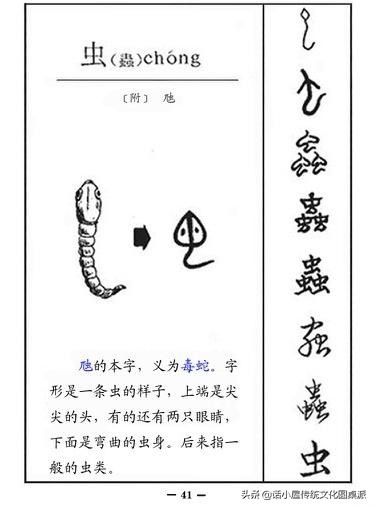 虫(蟲)chóng
〔附〕 虺
虺的本字，义为毒蛇。字
形是一条虫的样子，上端是尖
尖的头，有的还有两只眼睛，
下面是弯曲的虫身。后来指一
般的虫类。
蟲
蟲
蟲
蟲
虫
— 41 —
头条 @诺小屋传统文化圆桌派